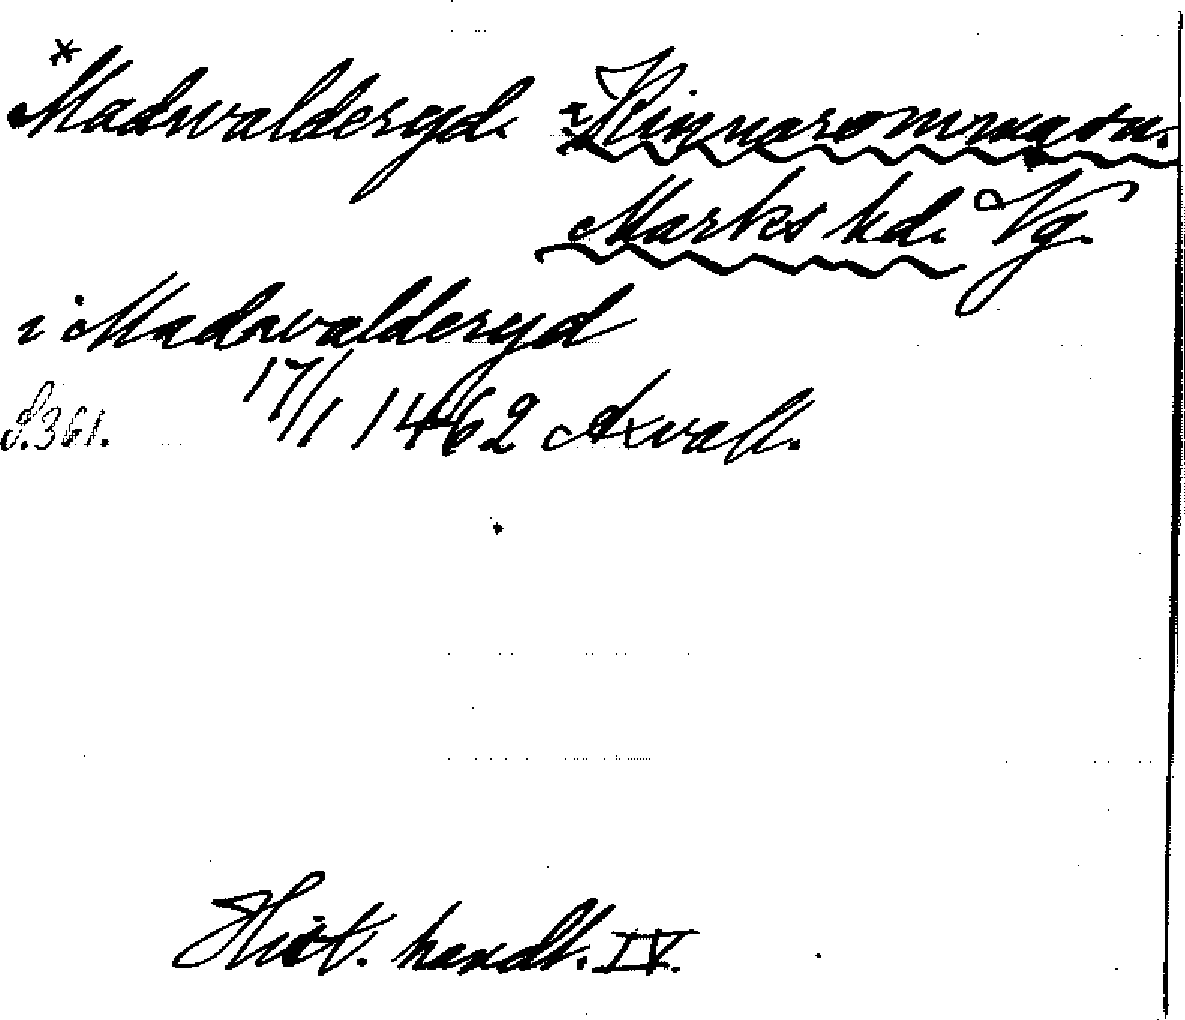 * Madrvalderyd. ? Kinnarommasn.
Marks hd. Vg.
i Madrvalderyd
S. 361. 17/1 1462 Axvall.
Hist. handl. IV.